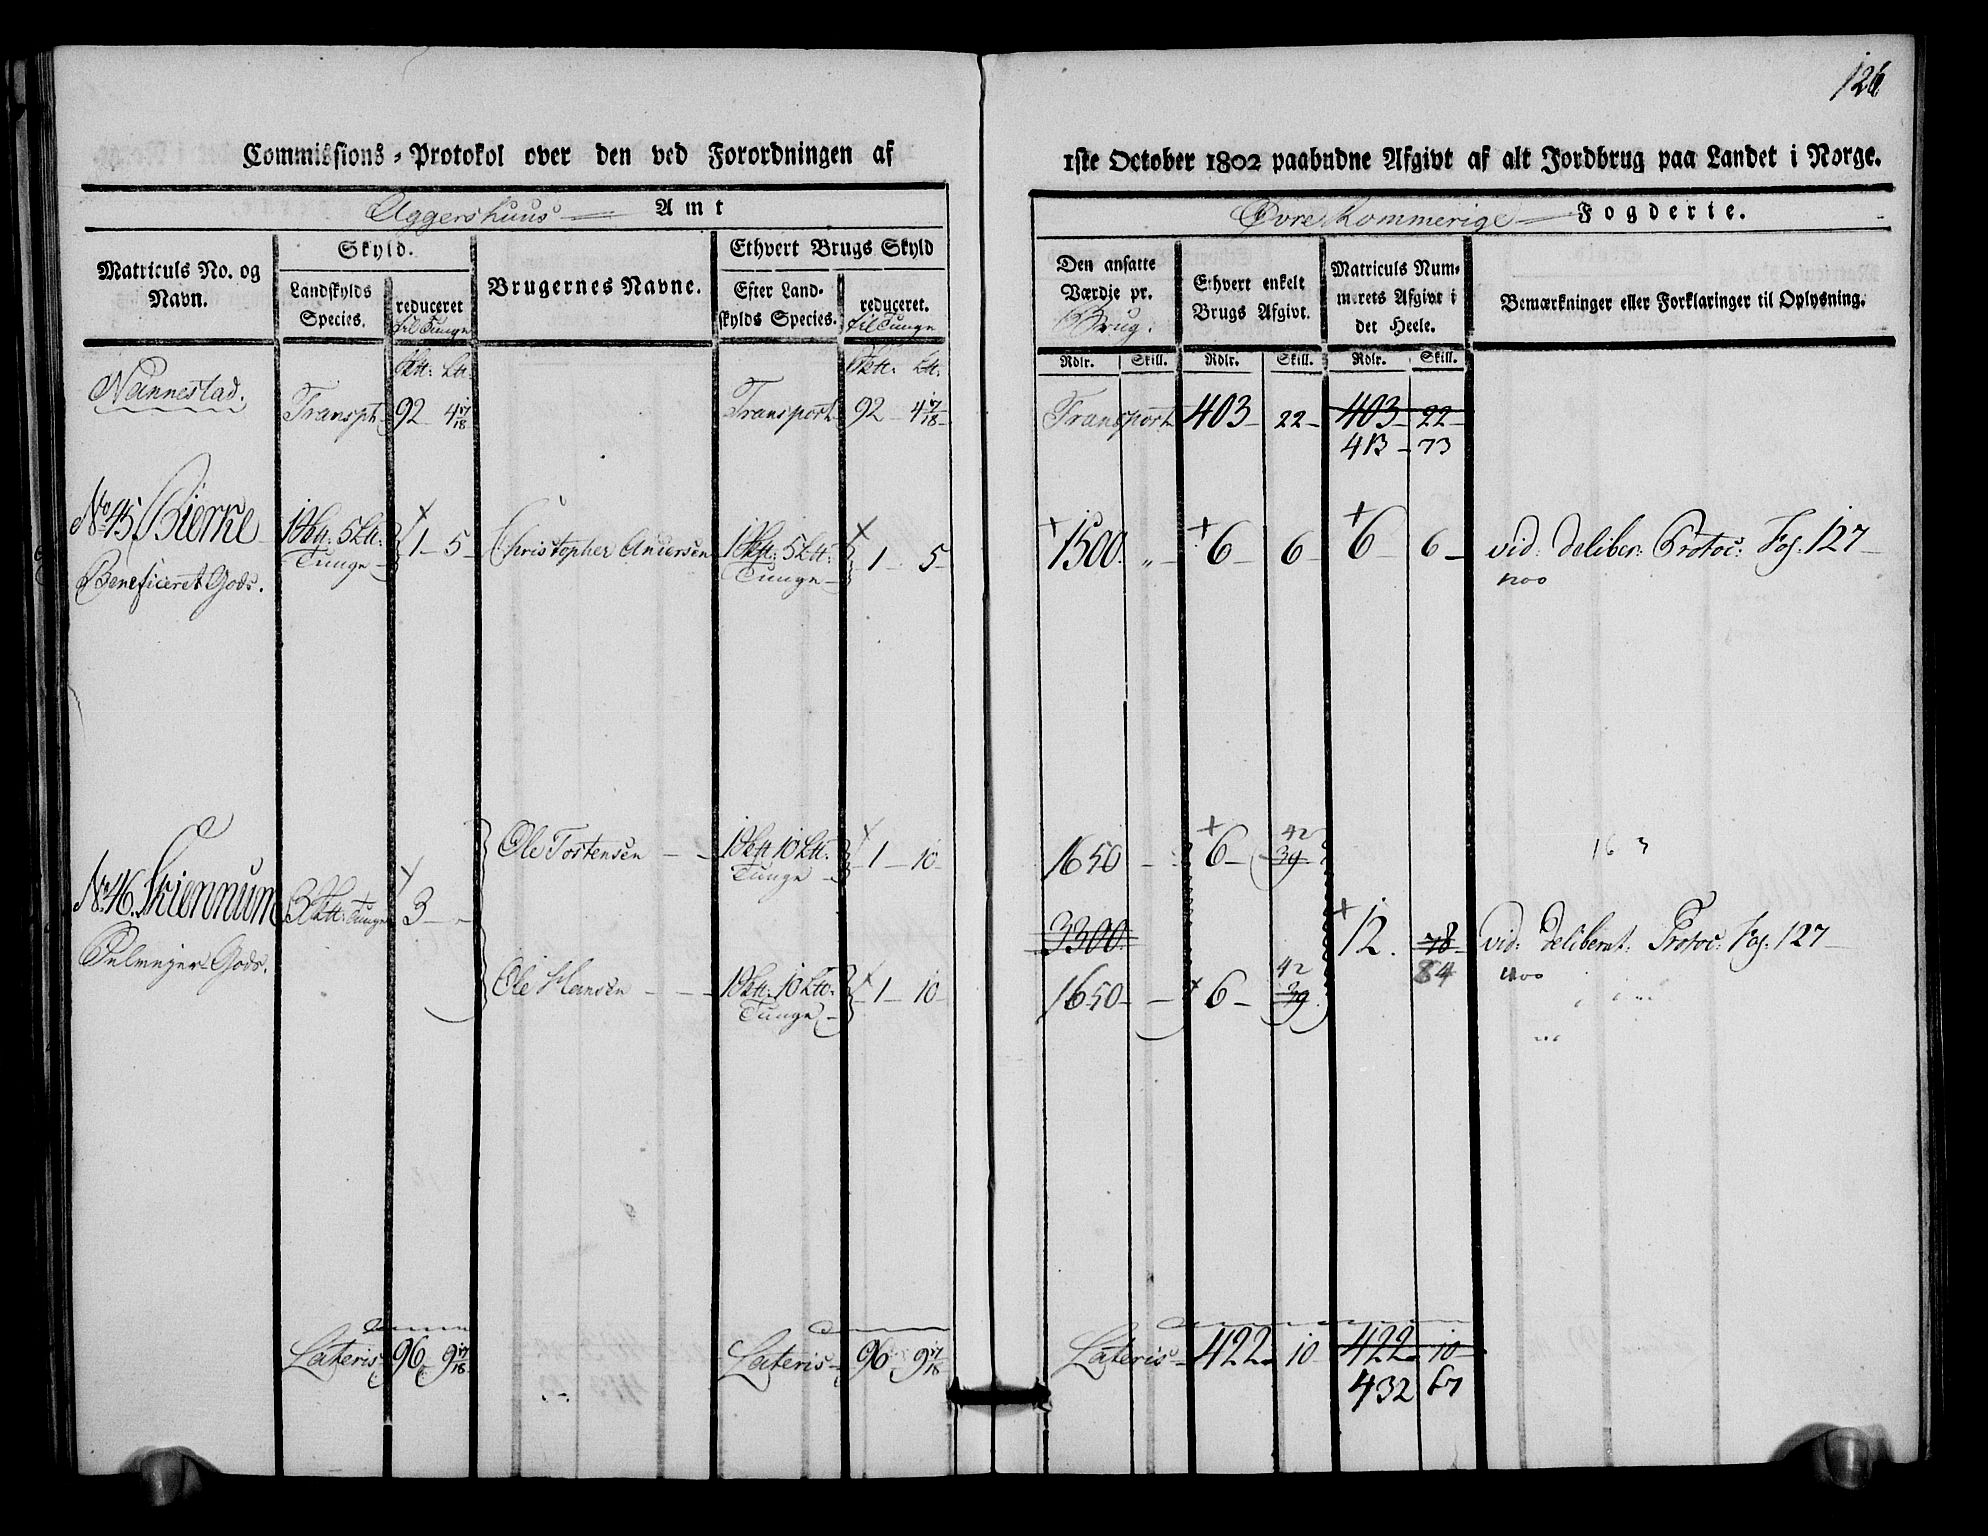 126
Commissions-Protokol over den ved Forordningen af 1ste October 1802 paabudne Afgivt af alt Jordbrug paa Landet i Norge.
Aggershuus Amt
Øvre Rommerige Fogderie.
Matriculs No. og Navn.
Skyld.
Landskylds Species.
reduceret til Tunge
Brugernes Navne.
Ethvert Brugs Skyld
Efter Landskylds Species.
reduceret. til Tunge
Den ansatte Værdje pr. Brug.
Ethvert enkelt Brugs Afgivt.
Matriculs Nummerets Afgivt i det Heele.
Bemærkninger eller Forklaringer til Oplysning.
Rdlr. Skill. Rdlr. Skill. Rdlr. Skill.
Nannestad.
Transpt 92 4 17/18 Transport 92 4 17/18 Transport 403 22 403 22
413 73
No 45 Bierke 1 5 1 5 Christopher Andersen 1 5 1500 „ 6 6 6 6 vid: deliber: Protoc: Fog. 127
Tunge Tunge
Beneficeret Gods.
Ole Tostensen 1 10 1 10 1650 6 42 39
Tunge
No 46. Skiennum 3 Tunge 3 3300 12. 78 84 vid: deliberat: Protoc: Fog. 127
Gods.
Ole Hansen 1 10 1 10 1650 6 42 39
Tunge
Lateris 96 9 17/18 Lateris 96 9 17/18 Lateris 422 10 422 10
432 67